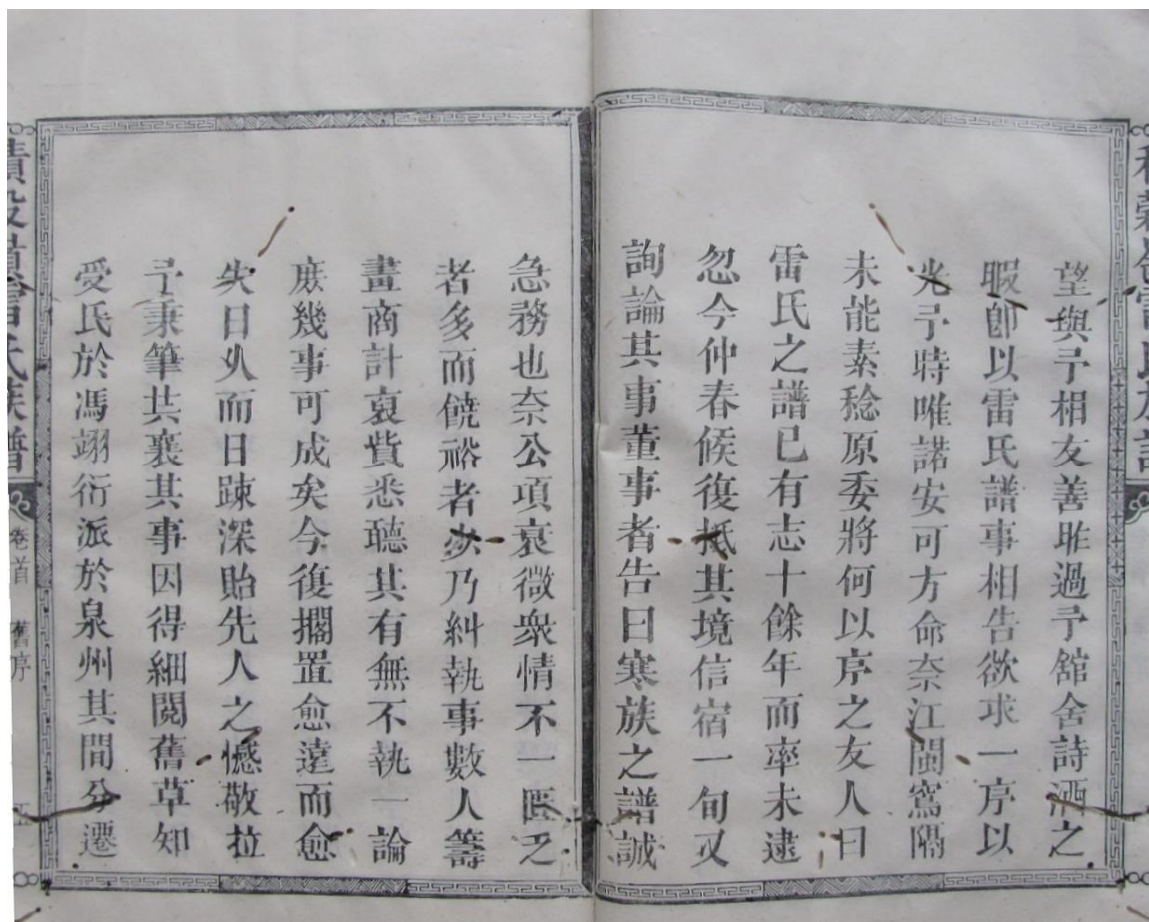 望與予相友善昨過予舘舍詩酒之
暇卽以雷氏譜事相告欲求一序以
光予時唯諾安可方命奈江閩窵隔
未能素稔原委將何以序之友人曰
雷氏之譜已有志十餘年而率未逮
忽今仲春候復抵其境信宿一旬又
詢論其事董事者告曰寒族之譜誠
急務也奈公項衰微衆情不一匱乏
者多而饒裕者少乃糾執事數人籌
畫商計裒貲悉聽其有無不執一論
庶幾事可成矣今復擱置愈遠而愈
失日久而日踈深貽先人之憾敬拉
予秉筆共襄其事因得細閱舊草知
受氏於馮翊衍派於泉州其間分遷
雷氏族譜
卷首
舊序